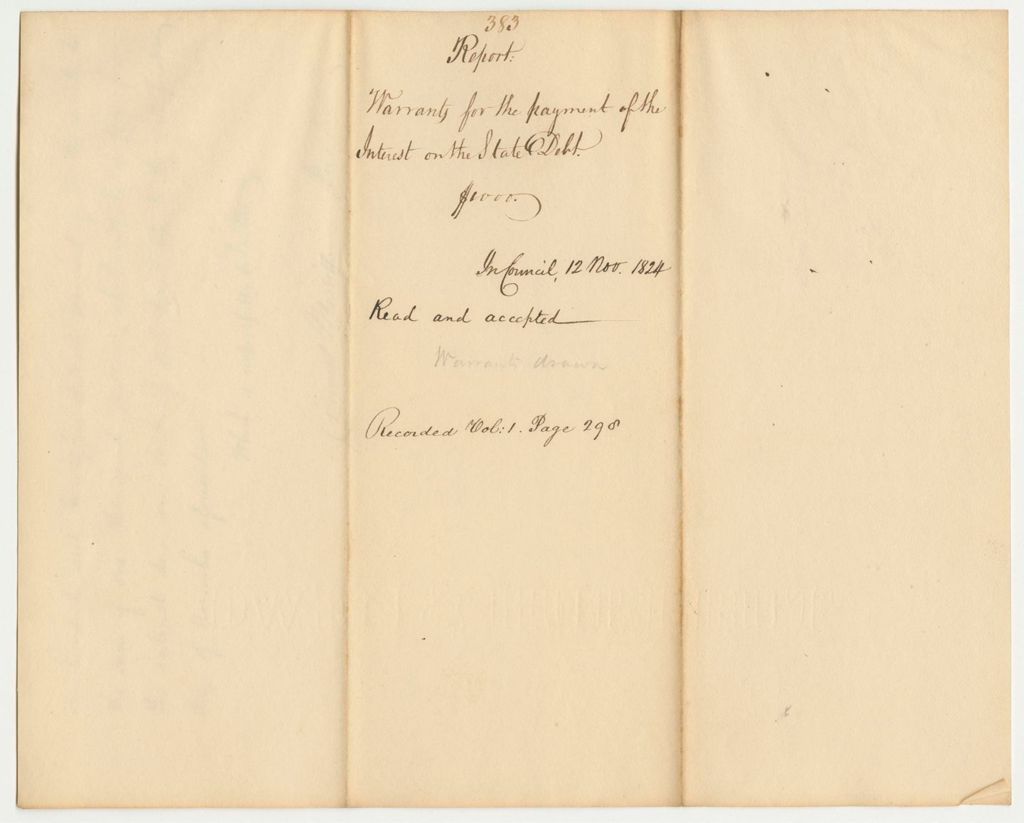 383
Report:
Warrants for the payment of the
Interest on the State Debt.
$1000.
In Council, 12 Nov. 1824
Read and accepted
Warrants drawn
Recorded Vol: 1. Page 298